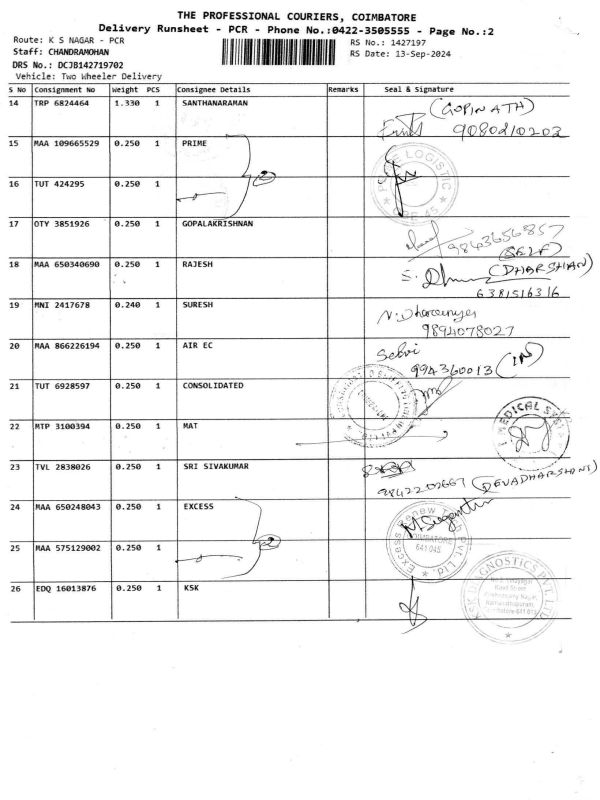 THE PROFESSIONAL COURIERS, COIMBATORE
Delivery Runsheet - PCR - Phone No.:0422-3505555 - Page No.:2
Route: K S NAGAR - PCR
RS No.: 1427197
Staff: CHANDRAMOHAN
RS Date: 13-Sep-2024
DRS No.: DCJB142719702
Vehicle: Two Wheeler Delivery
S No Consignment No Weight PCS Consignee Details Remarks Seal & Signature
14 TRP 6824464 1.330 1 SANTHANARAMAN (GOPINATH)
9080210203
15 MAA 109665529 0.250 1 PRIME
2
LOGISTIC
CBE-45
16 TUT 424295 0.250 1
17 OTY 3851926 0.250 1 GOPALAKRISHNAN
9843656857
(SELF)
18 MAA 650340690 0.250 1 RAJESH S. (DHARSHAN)
6381516316
19 MNI 2417678 0.240 1 SURESH
9894078027
20 MAA 866226194 0.250 1 AIR EC Selvi
994360013 (IN)
21 TUT 6928597 0.250 1 CONSOLIDATED
22 MTP 3100394 0.250 1 MAT
MEDICAL
23 TVL 2838026 0.250 1 SRI SIVAKUMAR
9842202667 (DEVADHARSHANI)
24 MAA 650248043 0.250 1 EXCESS
2
Excess Renew Pvt. Ltd.
COIMBATORE
641 045
25 MAA 575129002 0.250 1
26 EDQ 16013876 0.250 1 KSK
KSK DIAGNOSTICS PVT. LTD